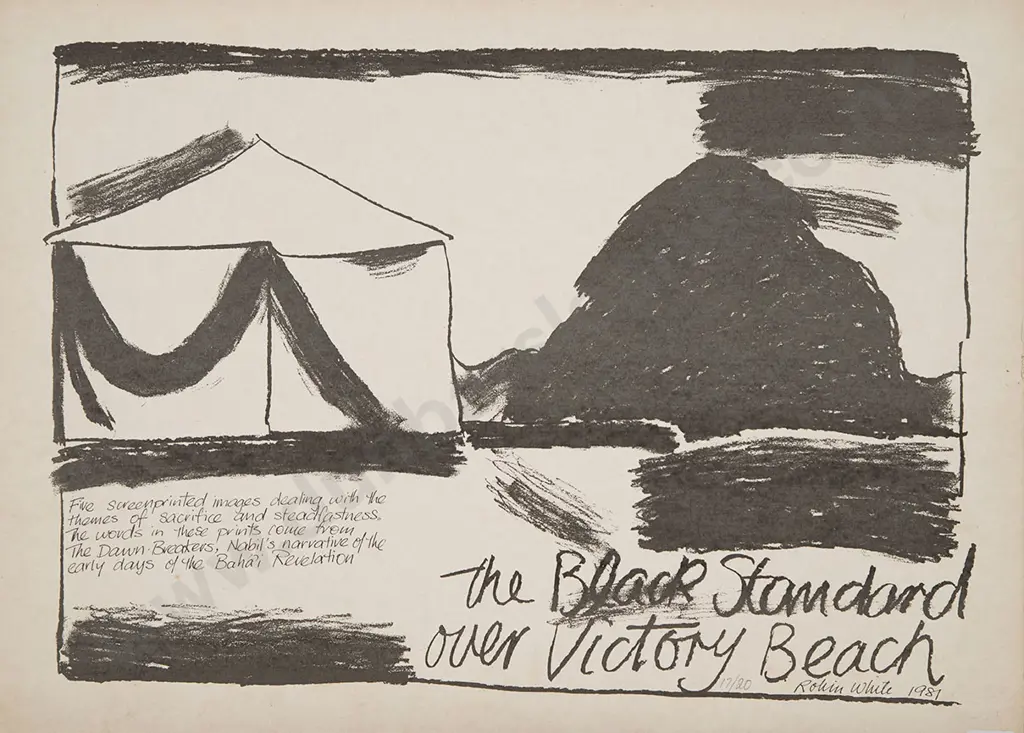 Five screenprinted images dealing with the
themes of sacrifice and steadfastness.
The words in these prints come from
The Dawn-Breakers, Nabil's narrative of the
early days of the Baha'i Revelation
the Black Standard
over Victory Beach
17/20
Robin White 1981